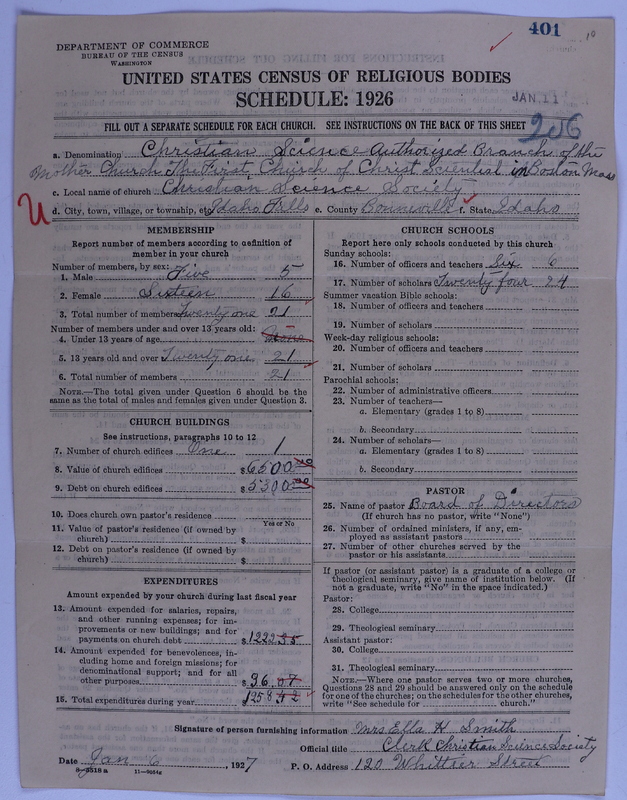 401
10
DEPARTMENT OF COMMERCE
BUREAU OF THE CENSUS
WASHINGTON
UNITED STATES CENSUS OF RELIGIOUS BODIES
SCHEDULE: 1926
JAN 11
FILL OUT A SEPARATE SCHEDULE FOR EACH CHURCH. SEE INSTRUCTIONS ON THE BACK OF THIS SHEET
206
a. Denomination Christian Science Authorized Branch of the
Mother Church The First Church of Christ Scientist in Boston Mass
c. Local name of church Christian Science Society
U d. City, town, village, or township, etc Idaho Falls e. County Bonneville f. State Idaho
MEMBERSHIP
Report number of members according to definition of
member in your church
Number of members, by sex:
1. Male Five 5
2. Female Sixteen 16
3. Total number of members Twenty one 21
Number of members under and over 13 years old:
4. Under 13 years of age None
5. 13 years old and over Twenty one 21
6. Total number of members 21
NOTE.—The total given under Question 6 should be the
same as the total of males and females given under Question 3.
CHURCH BUILDINGS
See instructions, paragraphs 10 to 12
7. Number of church edifices One 1
8. Value of church edifices $6500 00
9. Debt on church edifices $5300 00
10. Does church own pastor's residence
Yes or No
11. Value of pastor's residence (if owned by
church) $
12. Debt on pastor's residence (if owned by
church) $
EXPENDITURES
Amount expended by your church during last fiscal year
13. Amount expended for salaries, repairs,
and other running expenses; for im-
provements or new buildings; and for
payments on church debt $1222 35
14. Amount expended for benevolences, in-
cluding home and foreign missions; for
denominational support; and for all
other purposes $36.07
15. Total expenditures during year $1258 42
CHURCH SCHOOLS
Report here only schools conducted by this church
Sunday schools:
16. Number of officers and teachers Six 6
17. Number of scholars Twenty four 24
Summer vacation Bible schools:
18. Number of officers and teachers
19. Number of scholars
Week-day religious schools:
20. Number of officers and teachers
21. Number of scholars
Parochial schools:
22. Number of administrative officers
23. Number of teachers—
a. Elementary (grades 1 to 8)
b. Secondary
24. Number of scholars—
a. Elementary (grades 1 to 8)
b. Secondary
PASTOR
25. Name of pastor Board of Directors
(If church has no pastor, write "None")
26. Number of ordained ministers, if any, em-
ployed as assistant pastors
27. Number of other churches served by the
pastor or his assistants
If pastor (or assistant pastor) is a graduate of a college or
theological seminary, give name of institution below. (If
not a graduate, write "No" in the space indicated.)
Pastor:
28. College
29. Theological seminary
Assistant pastor:
30. College
31. Theological seminary
NOTE.—Where one pastor serves two or more churches,
Questions 28 and 29 should be answered only on the schedule
for one of the churches; on the schedules for the other churches,
write "See schedule for church."
Signature of person furnishing information Mrs Ella H Smith
Official title Clerk Christian Science Society
Date Jan 6, 1927 P. O. Address 120 Whittier Street
8-3518 a